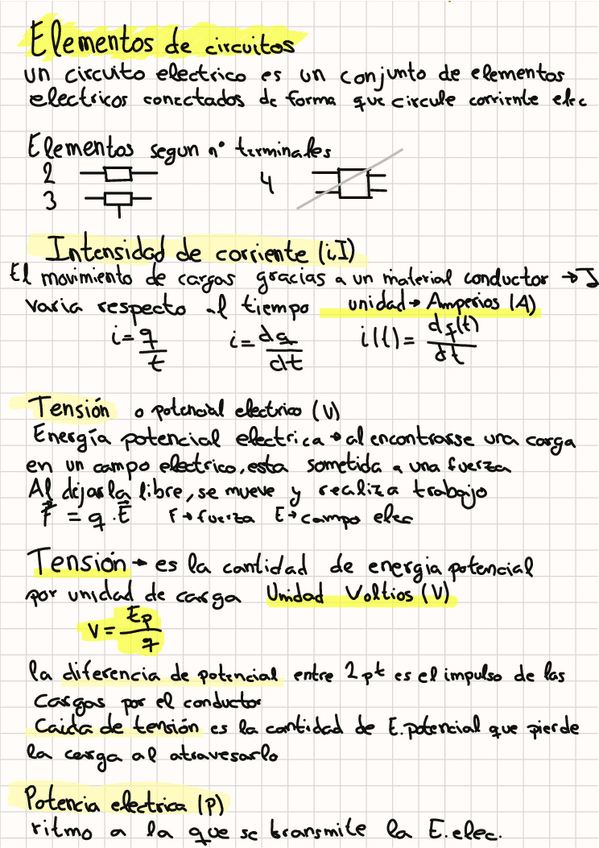 Elementos de circuitos
un circuito electrico es un conjunto de elementos
electricos conectados de forma que circule corriente elec
Elementos segun nº terminales
2 4
3
Intensidad de corriente (i,I)
El movimiento de cargas gracias a un material conductor → I
varia respecto al tiempo unidad → Amperios (A)
i = q/t i = dq/dt i(t) = dq(t)/dt
Tensión o potencial electrico (V)
Energía potencial electrica → al encontrarse una carga
en un campo electrico, esta sometida a una fuerza
Al dejarla libre, se mueve y realiza trabajo
F⃗ = q · E⃗ F → fuerza E → campo elec
Tensión → es la cantidad de energia potencial
por unidad de carga Unidad Voltios (V)
V = Ep/q
la diferencia de potencial entre 2 pt es el impulso de las
cargas por el conductor
Caida de tensión es la cantidad de E. potencial que pierde
la carga al atravesarlo
Potencia electrica (P)
ritmo a la que se transmite la E. elec.